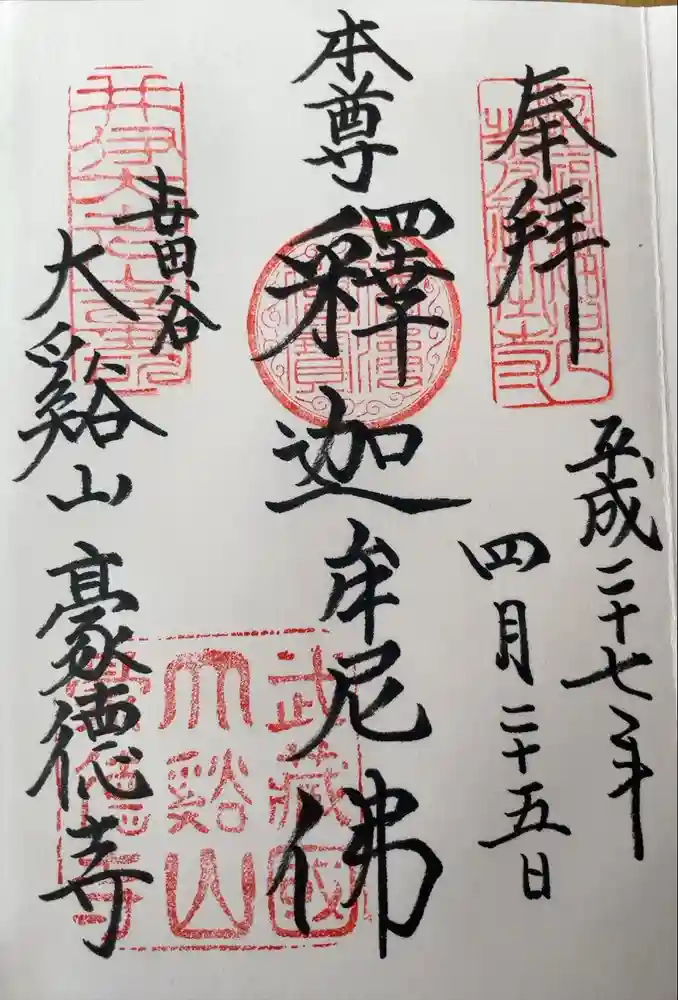 奉拝
平成二十七年
四月二十五日
本尊
釋迦牟尼佛
世田谷
大谿山
豪徳寺
武蔵國
大谿山
豪徳寺
佛法僧寶